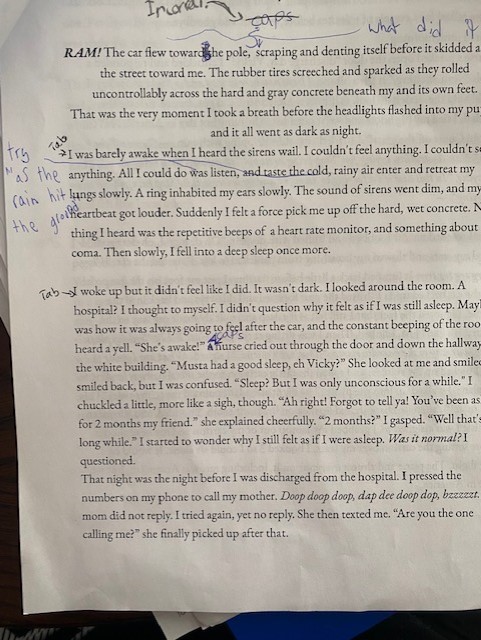 caps
what did it
RAM! The car flew toward the pole, scraping and denting itself before it skidded a
the street toward me. The rubber tires screeched and sparked as they rolled
uncontrollably across the hard and gray concrete beneath my and its own feet.
That was the very moment I took a breath before the headlights flashed into my pu
and it all went as dark as night.
Tab
I was barely awake when I heard the sirens wail. I couldn't feel anything. I couldn't s
try
"as the
rain hit
the ground
anything. All I could do was listen, and taste the cold, rainy air enter and retreat my
lungs slowly. A ring inhabited my ears slowly. The sound of sirens went dim, and my
heartbeat got louder. Suddenly I felt a force pick me up off the hard, wet concrete. N
thing I heard was the repetitive beeps of a heart rate monitor, and something about
coma. Then slowly, I fell into a deep sleep once more.
Tab
I woke up but it didn't feel like I did. It wasn't dark. I looked around the room. A
hospital? I thought to myself. I didn't question why it felt as if I was still asleep. May
was how it was always going to feel after the car, and the constant beeping of the roo
caps
heard a yell. "She's awake!" a nurse cried out through the door and down the hallway
the white building. "Musta had a good sleep, eh Vicky?" She looked at me and smile
smiled back, but I was confused. "Sleep? But I was only unconscious for a while." I
chuckled a little, more like a sigh, though. "Ah right! Forgot to tell ya! You've been as
for 2 months my friend." she explained cheerfully. "2 months?" I gasped. "Well that's
long while." I started to wonder why I still felt as if I were asleep. Was it normal? I
questioned.
That night was the night before I was discharged from the hospital. I pressed the
numbers on my phone to call my mother. Doop doop doop, dap dee doop dop, bzzzzzt.
mom did not reply. I tried again, yet no reply. She then texted me. "Are you the one
calling me?" she finally picked up after that.